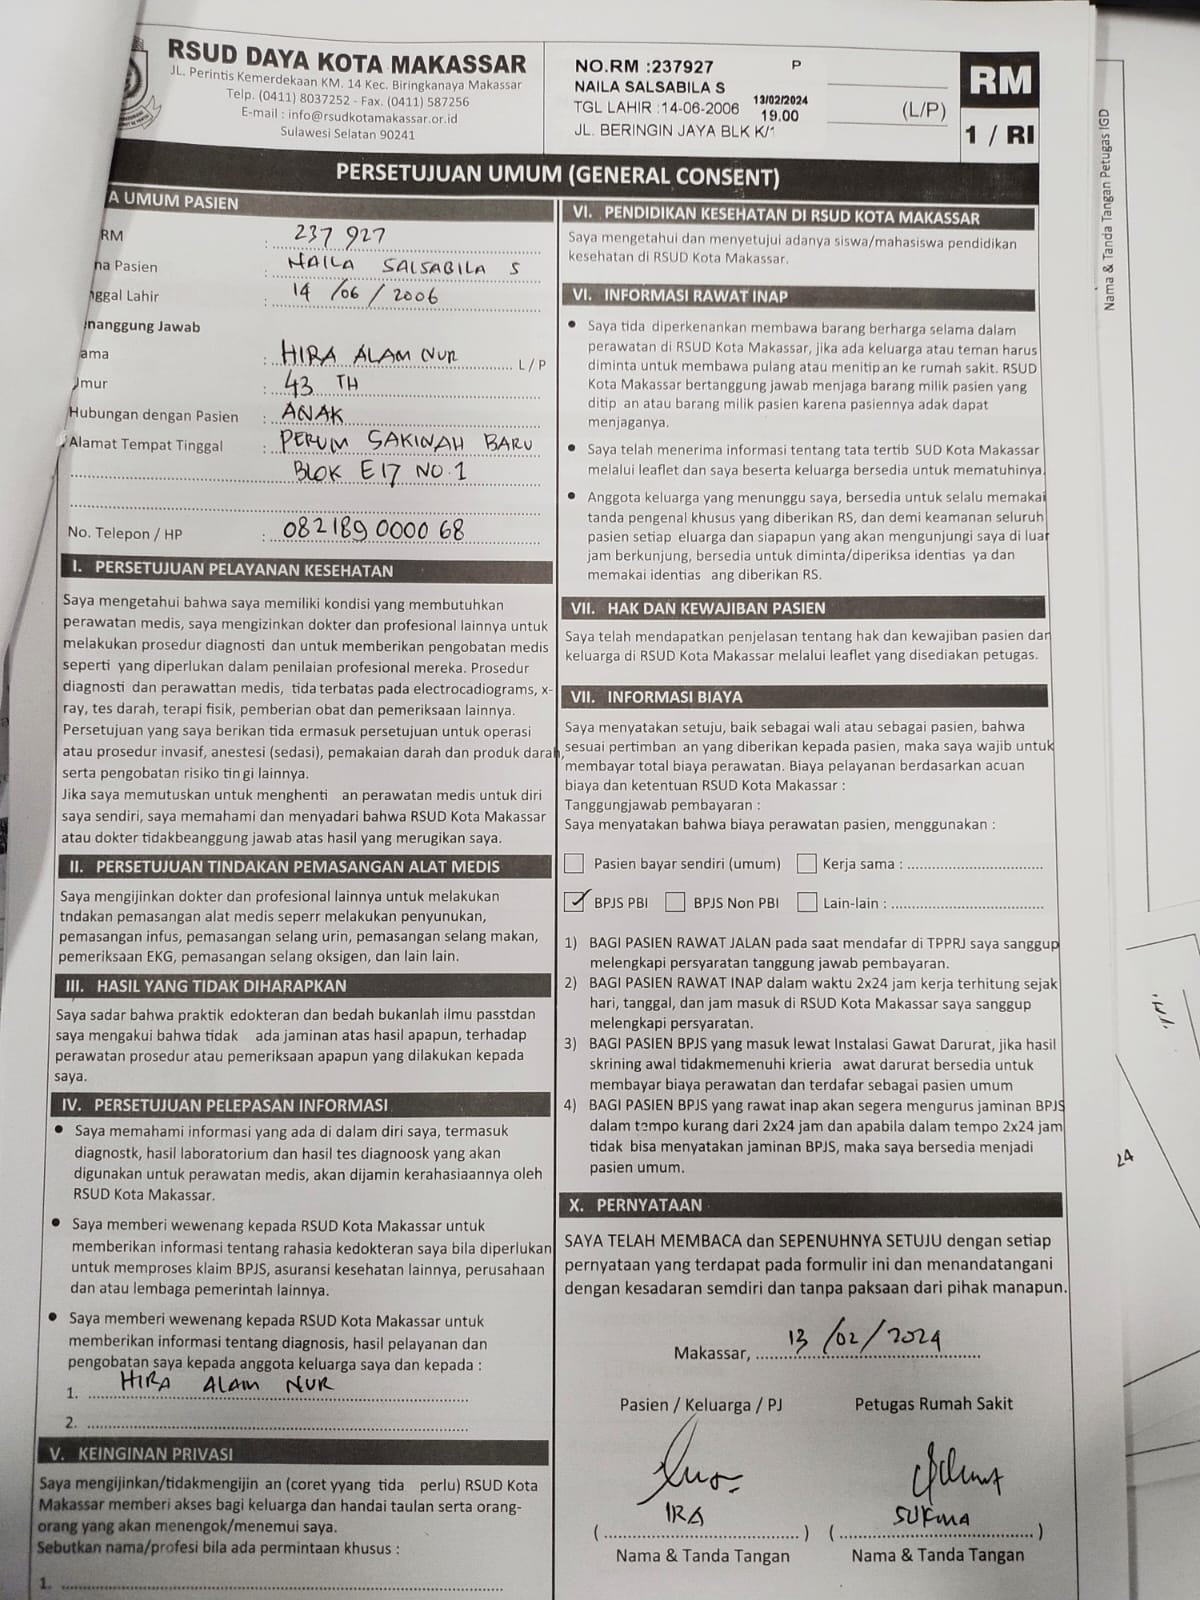 RSUD DAYA KOTA MAKASSAR
JL. Perintis Kemerdekaan KM. 14 Kec. Biringkanaya Makassar
Telp. (0411) 8037252 - Fax. (0411) 587256
E-mail : info@rsudkotamakassar.or.id
Sulawesi Selatan 90241
NO.RM :237927 P
NAILA SALSABILA S
TGL LAHIR :14-06-2006
13/02/2024
19.00
JL. BERINGIN JAYA BLK K/1
(L/P)
RM
1 / RI
PERSETUJUAN UMUM (GENERAL CONSENT)
A UMUM PASIEN
RM : 237 927
na Pasien : NAILA SALSABILA S
nggal Lahir : 14 /06 / 2006
nanggung Jawab
ama : HIRA ALAM NUR L / P
Umur : 43 TH
Hubungan dengan Pasien : ANAK
Alamat Tempat Tinggal : PERUM SAKINAH BARU
BLOK E 17 NO.1
No. Telepon / HP : 082189 0000 68
I. PERSETUJUAN PELAYANAN KESEHATAN
Saya mengetahui bahwa saya memiliki kondisi yang membutuhkan
perawatan medis, saya mengizinkan dokter dan profesional lainnya untuk
melakukan prosedur diagnosti dan untuk memberikan pengobatan medis
seperti yang diperlukan dalam penilaian profesional mereka. Prosedur
diagnosti dan perawattan medis, tida terbatas pada electrocadiograms, x-
ray, tes darah, terapi fisik, pemberian obat dan pemeriksaan lainnya.
Persetujuan yang saya berikan tida ermasuk persetujuan untuk operasi
atau prosedur invasif, anestesi (sedasi), pemakaian darah dan produk darah,
serta pengobatan risiko tin gi lainnya.
Jika saya memutuskan untuk menghenti an perawatan medis untuk diri
saya sendiri, saya memahami dan menyadari bahwa RSUD Kota Makassar
atau dokter tidakbeanggung jawab atas hasil yang merugikan saya.
II. PERSETUJUAN TINDAKAN PEMASANGAN ALAT MEDIS
Saya mengijinkan dokter dan profesional lainnya untuk melakukan
tndakan pemasangan alat medis seperr melakukan penyunukan,
pemasangan infus, pemasangan selang urin, pemasangan selang makan,
pemeriksaan EKG, pemasangan selang oksigen, dan lain lain.
III. HASIL YANG TIDAK DIHARAPKAN
Saya sadar bahwa praktik edokteran dan bedah bukanlah ilmu passtdan
saya mengakui bahwa tidak ada jaminan atas hasil apapun, terhadap
perawatan prosedur atau pemeriksaan apapun yang dilakukan kepada
saya.
IV. PERSETUJUAN PELEPASAN INFORMASI
• Saya memahami informasi yang ada di dalam diri saya, termasuk
diagnostk, hasil laboratorium dan hasil tes diagnoosk yang akan
digunakan untuk perawatan medis, akan dijamin kerahasiaannya oleh
RSUD Kota Makassar.
• Saya memberi wewenang kepada RSUD Kota Makassar untuk
memberikan informasi tentang rahasia kedokteran saya bila diperlukan
untuk memproses klaim BPJS, asuransi kesehatan lainnya, perusahaan
dan atau lembaga pemerintah lainnya.
• Saya memberi wewenang kepada RSUD Kota Makassar untuk
memberikan informasi tentang diagnosis, hasil pelayanan dan
pengobatan saya kepada anggota keluarga saya dan kepada :
1. HIRA ALAM NUR
2.
V. KEINGINAN PRIVASI
Saya mengijinkan/tidakmengijin an (coret yyang tida perlu) RSUD Kota
Makassar memberi akses bagi keluarga dan handai taulan serta orang-
orang yang akan menengok/menemui saya.
Sebutkan nama/profesi bila ada permintaan khusus :
1.
VI. PENDIDIKAN KESEHATAN DI RSUD KOTA MAKASSAR
Saya mengetahui dan menyetujui adanya siswa/mahasiswa pendidikan
kesehatan di RSUD Kota Makassar.
VI. INFORMASI RAWAT INAP
• Saya tida diperkenankan membawa barang berharga selama dalam
perawatan di RSUD Kota Makassar, jika ada keluarga atau teman harus
diminta untuk membawa pulang atau menitip an ke rumah sakit. RSUD
Kota Makassar bertanggung jawab menjaga barang milik pasien yang
ditip an atau barang milik pasien karena pasiennya adak dapat
menjaganya.
• Saya telah menerima informasi tentang tata tertib SUD Kota Makassar
melalui leaflet dan saya beserta keluarga bersedia untuk mematuhinya.
• Anggota keluarga yang menunggu saya, bersedia untuk selalu memakai
tanda pengenal khusus yang diberikan RS, dan demi keamanan seluruh
pasien setiap eluarga dan siapapun yang akan mengunjungi saya di luar
jam berkunjung, bersedia untuk diminta/diperiksa identias ya dan
memakai identias ang diberikan RS.
VII. HAK DAN KEWAJIBAN PASIEN
Saya telah mendapatkan penjelasan tentang hak dan kewajiban pasien dan
keluarga di RSUD Kota Makassar melalui leaflet yang disediakan petugas.
VII. INFORMASI BIAYA
Saya menyatakan setuju, baik sebagai wali atau sebagai pasien, bahwa
sesuai pertimban an yang diberikan kepada pasien, maka saya wajib untuk
membayar total biaya perawatan. Biaya pelayanan berdasarkan acuan
biaya dan ketentuan RSUD Kota Makassar :
Tanggungjawab pembayaran :
Saya menyatakan bahwa biaya perawatan pasien, menggunakan :
Pasien bayar sendiri (umum) Kerja sama :
✓ BPJS PBI BPJS Non PBI Lain-lain :
1) BAGI PASIEN RAWAT JALAN pada saat mendafar di TPPRJ saya sanggup
melengkapi persyaratan tanggung jawab pembayaran.
2) BAGI PASIEN RAWAT INAP dalam waktu 2x24 jam kerja terhitung sejak
hari, tanggal, dan jam masuk di RSUD Kota Makassar saya sanggup
melengkapi persyaratan.
3) BAGI PASIEN BPJS yang masuk lewat Instalasi Gawat Darurat, jika hasil
skrining awal tidakmemenuhi krieria awat darurat bersedia untuk
membayar biaya perawatan dan terdafar sebagai pasien umum
4) BAGI PASIEN BPJS yang rawat inap akan segera mengurus jaminan BPJS
dalam tempo kurang dari 2x24 jam dan apabila dalam tempo 2x24 jam
tidak bisa menyatakan jaminan BPJS, maka saya bersedia menjadi
pasien umum.
X. PERNYATAAN
SAYA TELAH MEMBACA dan SEPENUHNYA SETUJU dengan setiap
pernyataan yang terdapat pada formulir ini dan menandatangani
dengan kesadaran semdiri dan tanpa paksaan dari pihak manapun.
Makassar, 13 /02 /2024
Pasien / Keluarga / PJ Petugas Rumah Sakit
IRA SUKMA
( ) ( )
Nama & Tanda Tangan Nama & Tanda Tangan
Nama & Tanda Tangan Petugas IGD
24